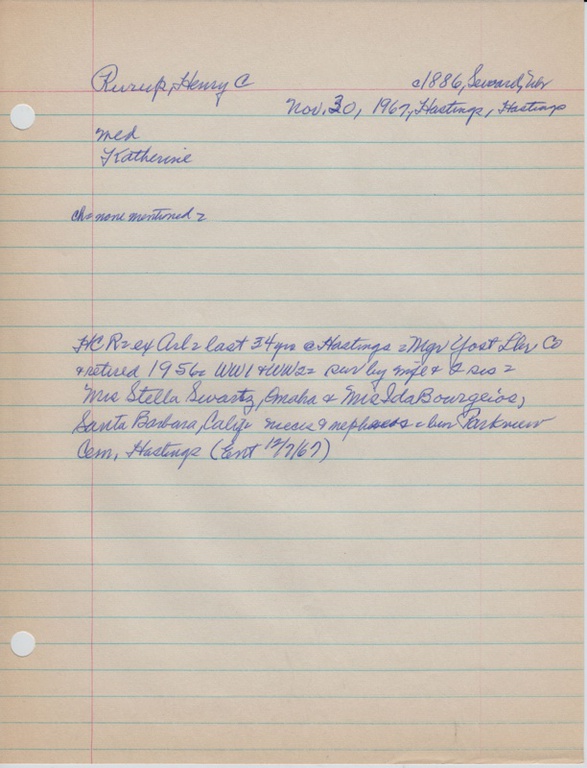 Rurup, Henry C c1886, Seward, Nbr
Nov. 30, 1967, Hastings, Hastings
med
Katherine
ch = none mentioned =
HCR = ex Arl = last 34 yrs @ Hastings = Mgr Yost Lbr Co
& retired 1956 = WW1 & WW2 = sur by wife & 2 sis =
Mrs Stella Swartz, Omaha & Mrs Ida Bourgeios,
Santa Barbara, Calif = nieces & nephews = bur Parkview
Cem, Hastings (Ent 12/7/67)